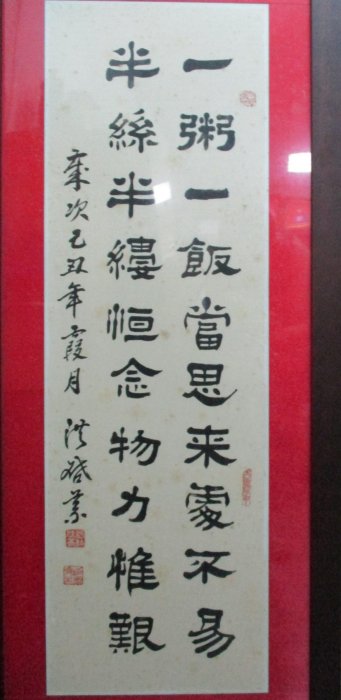 一粥一飯當思来處不易
半絲半縷恒念物力惟艱
歲次己丑年霞月 洪啓業